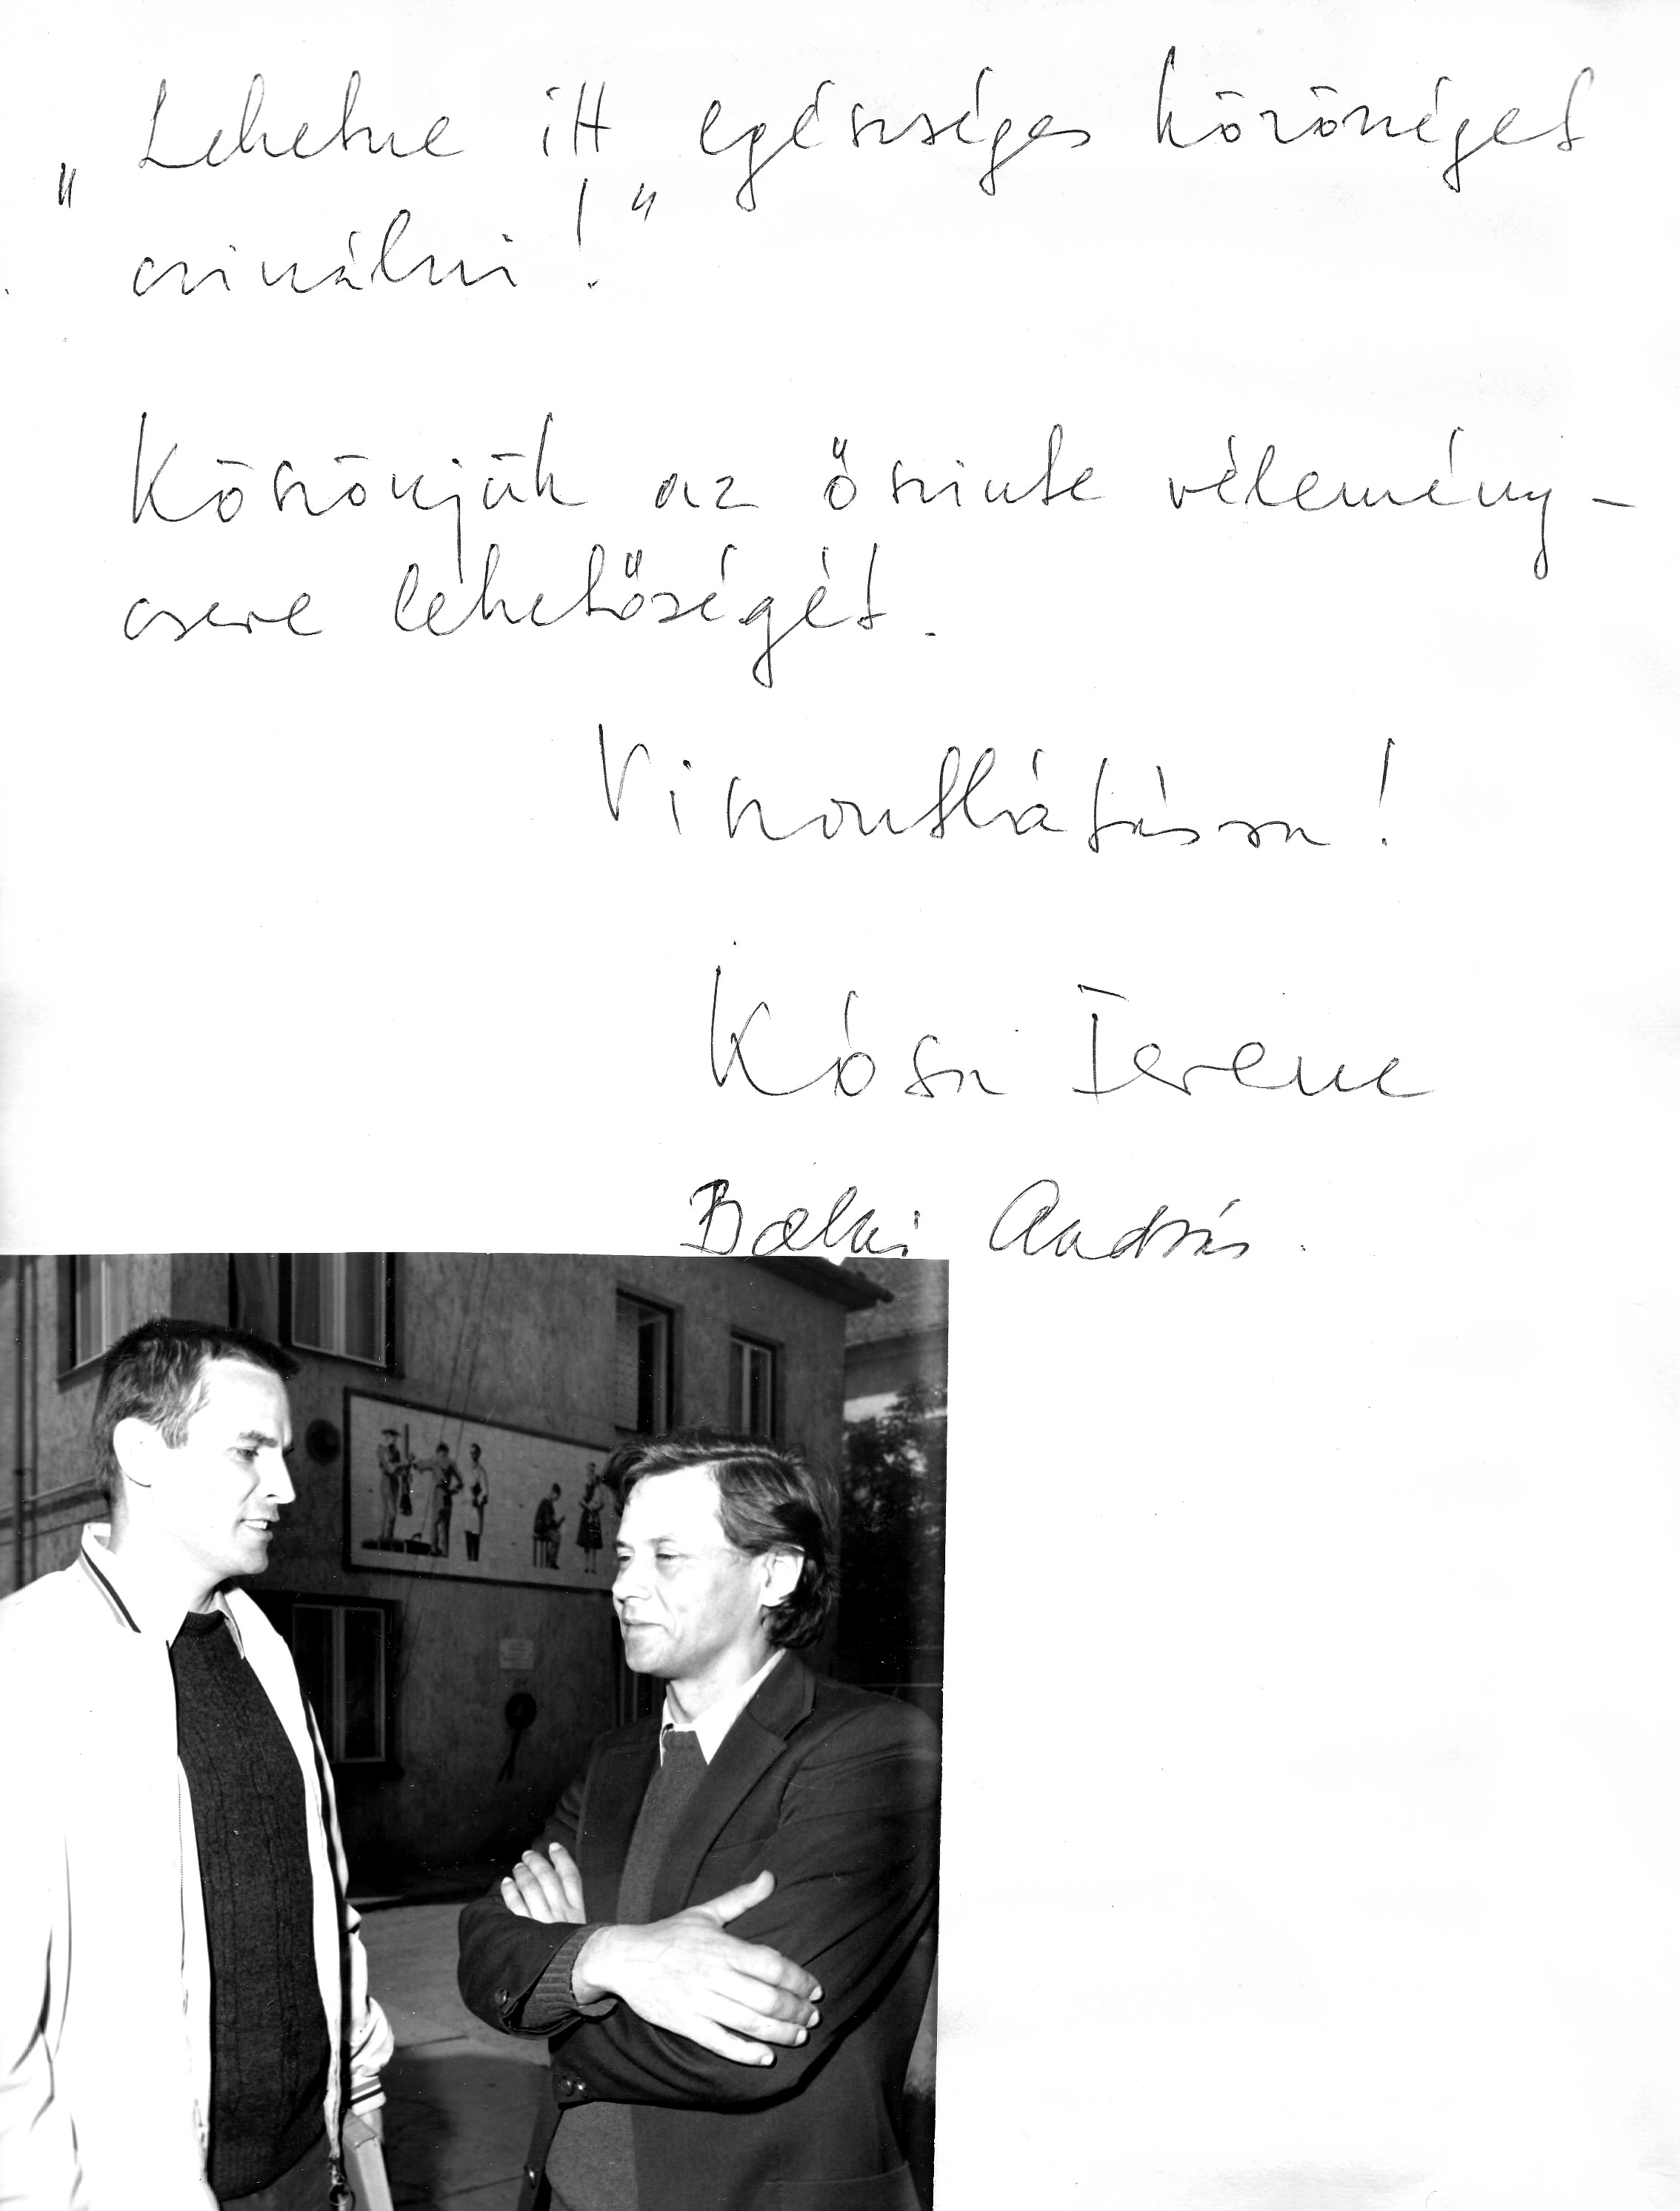 „Lehetne itt egészséges közösséget
csinálni!"
Köszönjük az őszinte vélemény-
csere lehetőségét.
Viszontlátásra!
Kósa Ferenc
András.